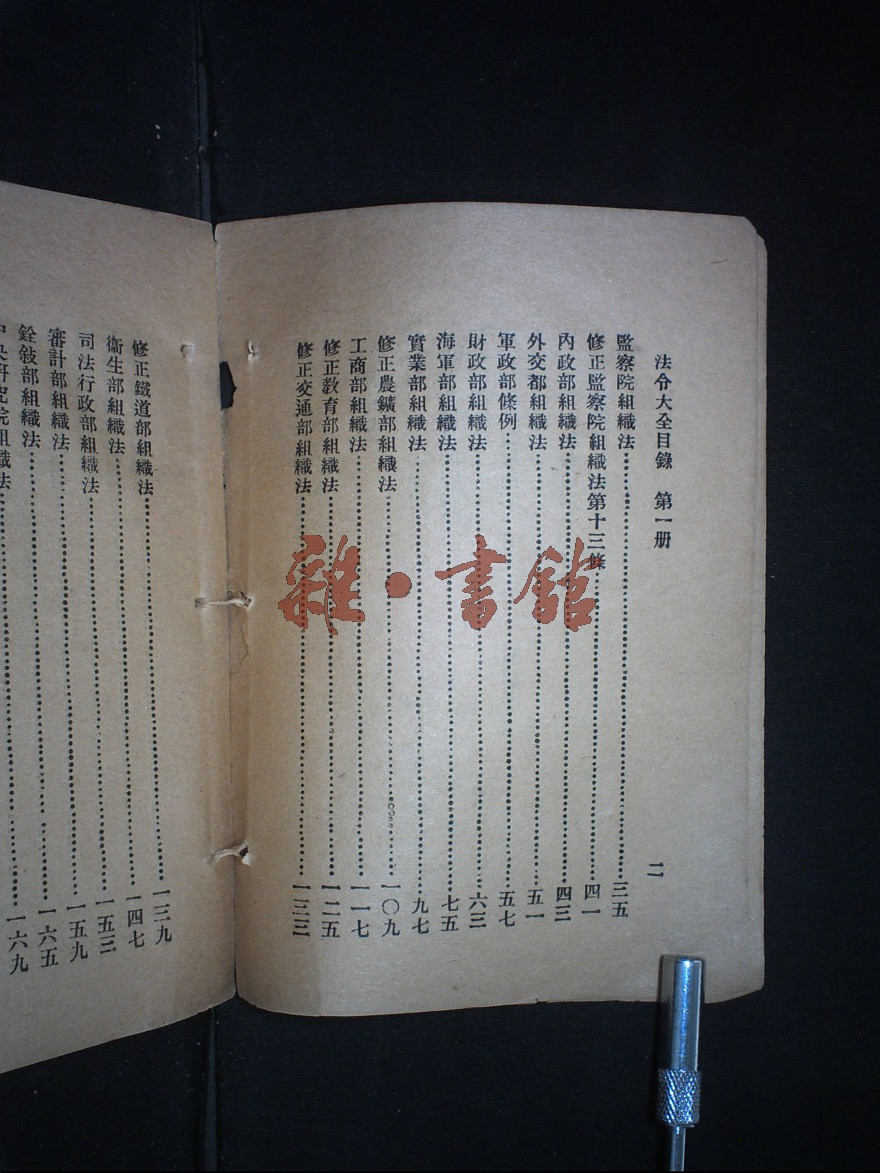 法令大全目錄　第一册　二
監察院組織法……三五
修正監察院組織法第十三條……四一
內政部組織法……四三
外交都組織法……五一
軍政部條例……五七
財政部組織法……六三
海軍部組織法……七五
實業部組織法……九七
修正農鑛部組織法……一〇九
工商部組織法……一一七
修正教育部組織法……一二五
修正交通部組織法……一三三
修正鐵道部組織法……一三九
衞生部組織法……一四七
司法行政部組織法……一五三
審計部組織法……一五九
銓敍部組織法……一六五
中央研究院組織法……一六九
雜·書館